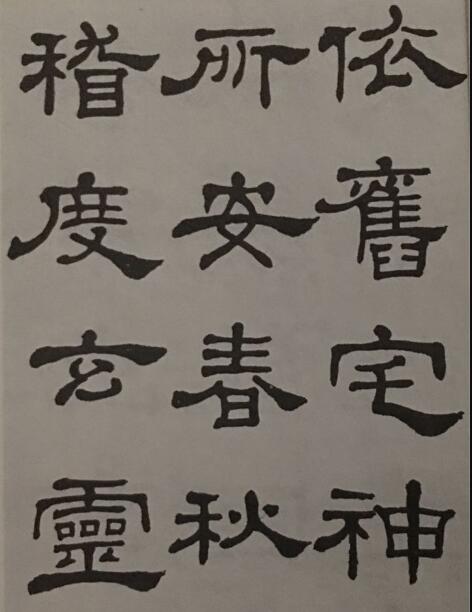 依舊宅神
所安春秋
稽度玄靈